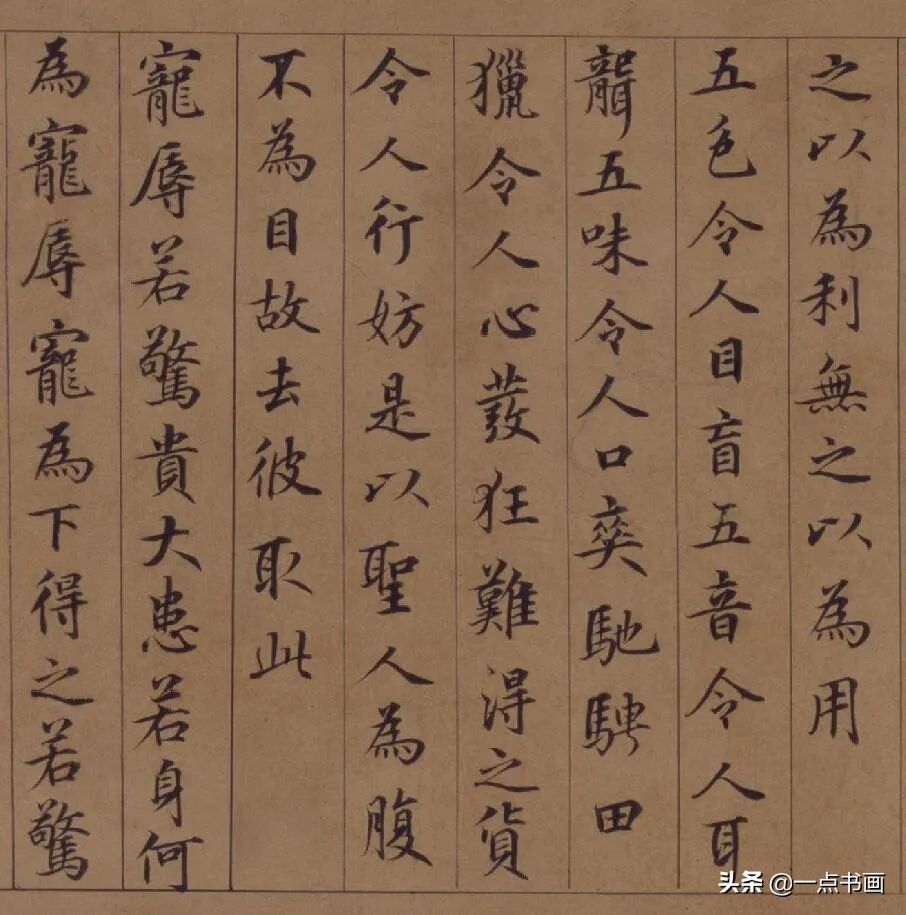 之以為利無之以為用
五色令人目盲五音令人耳
聾五味令人口爽馳騁田
獵令人心發狂難得之貨
令人行妨是以聖人為腹
不為目故去彼取此
寵辱若驚貴大患若身何
為寵辱寵為下得之若驚
头条 @一点书画